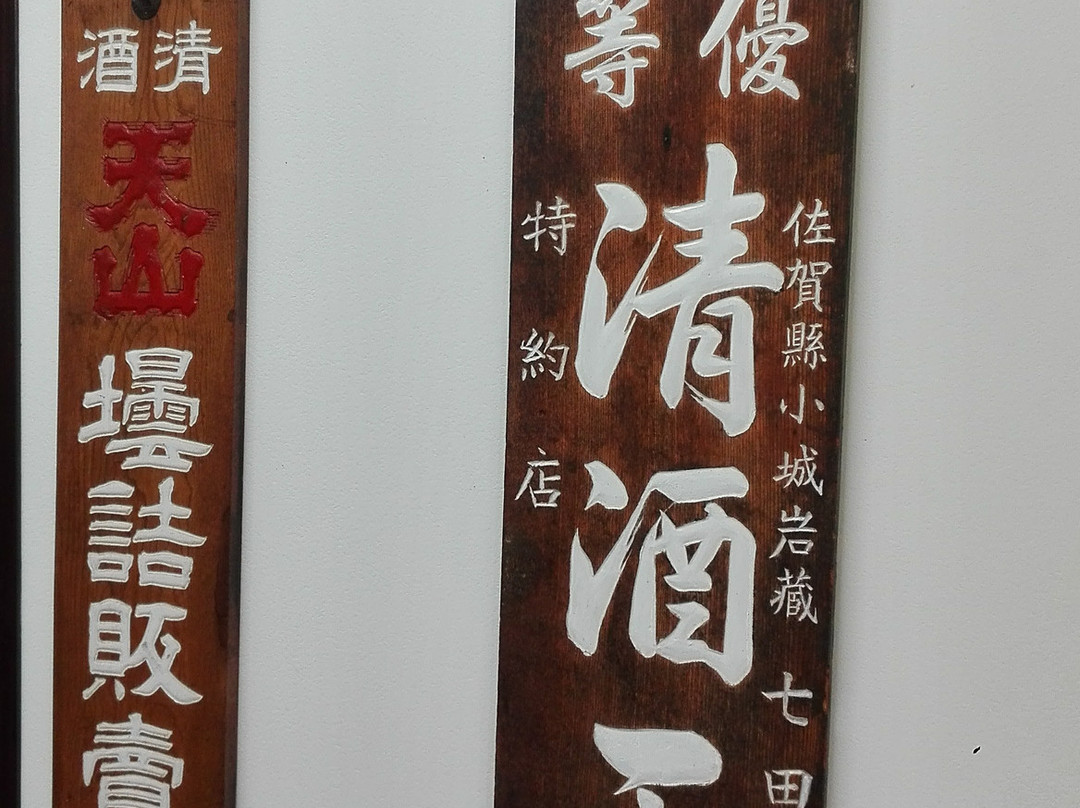 優等
佐賀縣小城岩藏 七田
清酒
特約店
清酒
天山
壜詰販賣